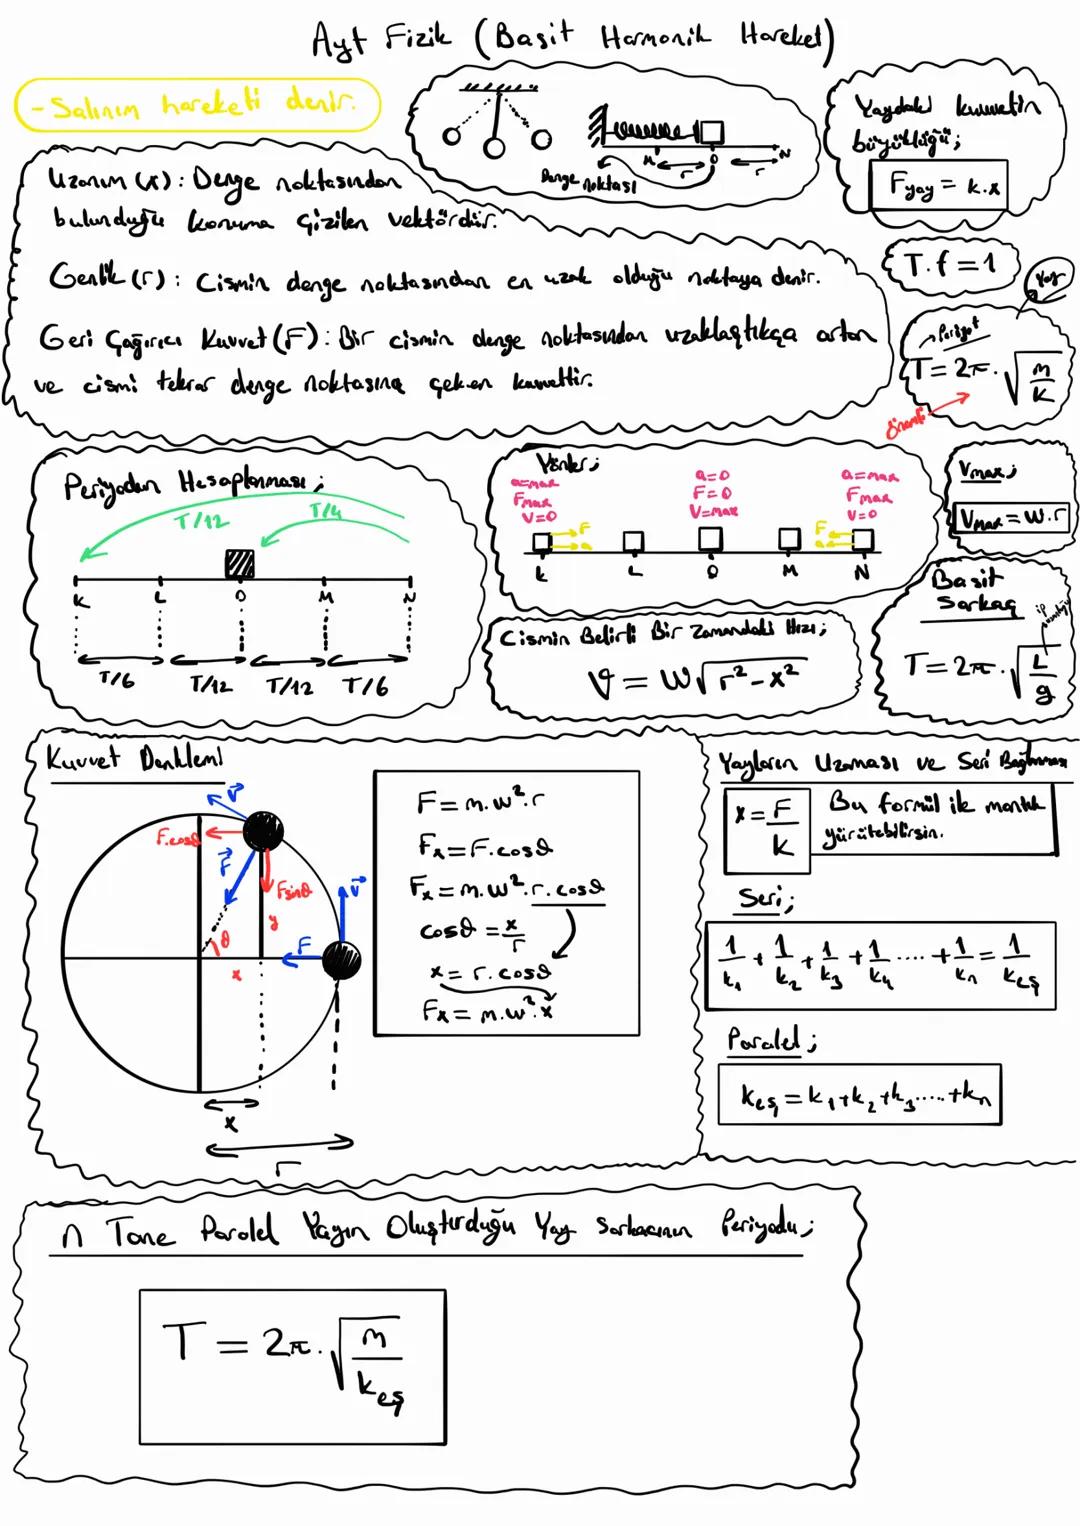 Ayt Fizik (Basit Harmonik Hareket)
- Salınım hareketi denir.
K O N
r r
Denge noktası
Yaydaki kuvvetin
büyüklüğü;
Fyay = k.x
Uzanım (x) : Denge noktasından
bulunduğu konuma çizilen vektördür.
Genlik (r) : Cismin denge noktasından en uzak olduğu noktaya denir.
Geri Çağırıcı Kuvvet (F) : Bir cismin denge noktasından uzaklaştıkça artan
ve cismi tekrar denge noktasına çeken kuvvettir.
T.f = 1
Yay
Periyot
T = 2π.√(m/k)
önemli
Periyodun Hesaplanması ;
T/12 T/4
K L O M N
T/6 T/12 T/12 T/6
Yönler ;
a=max a=0 a=max
Fmax F=0 Fmax
V=0 V=max V=0
F F
a a
K L O M N
Vmax ;
Vmax = W.r
Cismin Belirli Bir Zamandaki Hızı ;
V = W√(r²-x²)
Basit
Sarkaç
ip uzunluğu
T = 2π.√(L/g)
Kuvvet Denklemi
V
F.cosθ
F
Fsinθ
y
V
θ
F
x
x
r
F = m.w².r
Fx = F.cosθ
Fx = m.w².r.cosθ
cosθ = x/r
x = r.cosθ
Fx = m.w².x
Yayların Uzaması ve Seri Bağlanması
x = F/k
Bu formül ile mantık
yürütebilirsin.
Seri ;
1/k1 + 1/k2 + 1/k3 + 1/k4 .... + 1/kn = 1/keş
Paralel ;
keş = k1+k2+k3.....+kn
n Tane Paralel Yayın Oluşturduğu Yay Sarkacının Periyodu ;
T = 2π.√(m/keş)